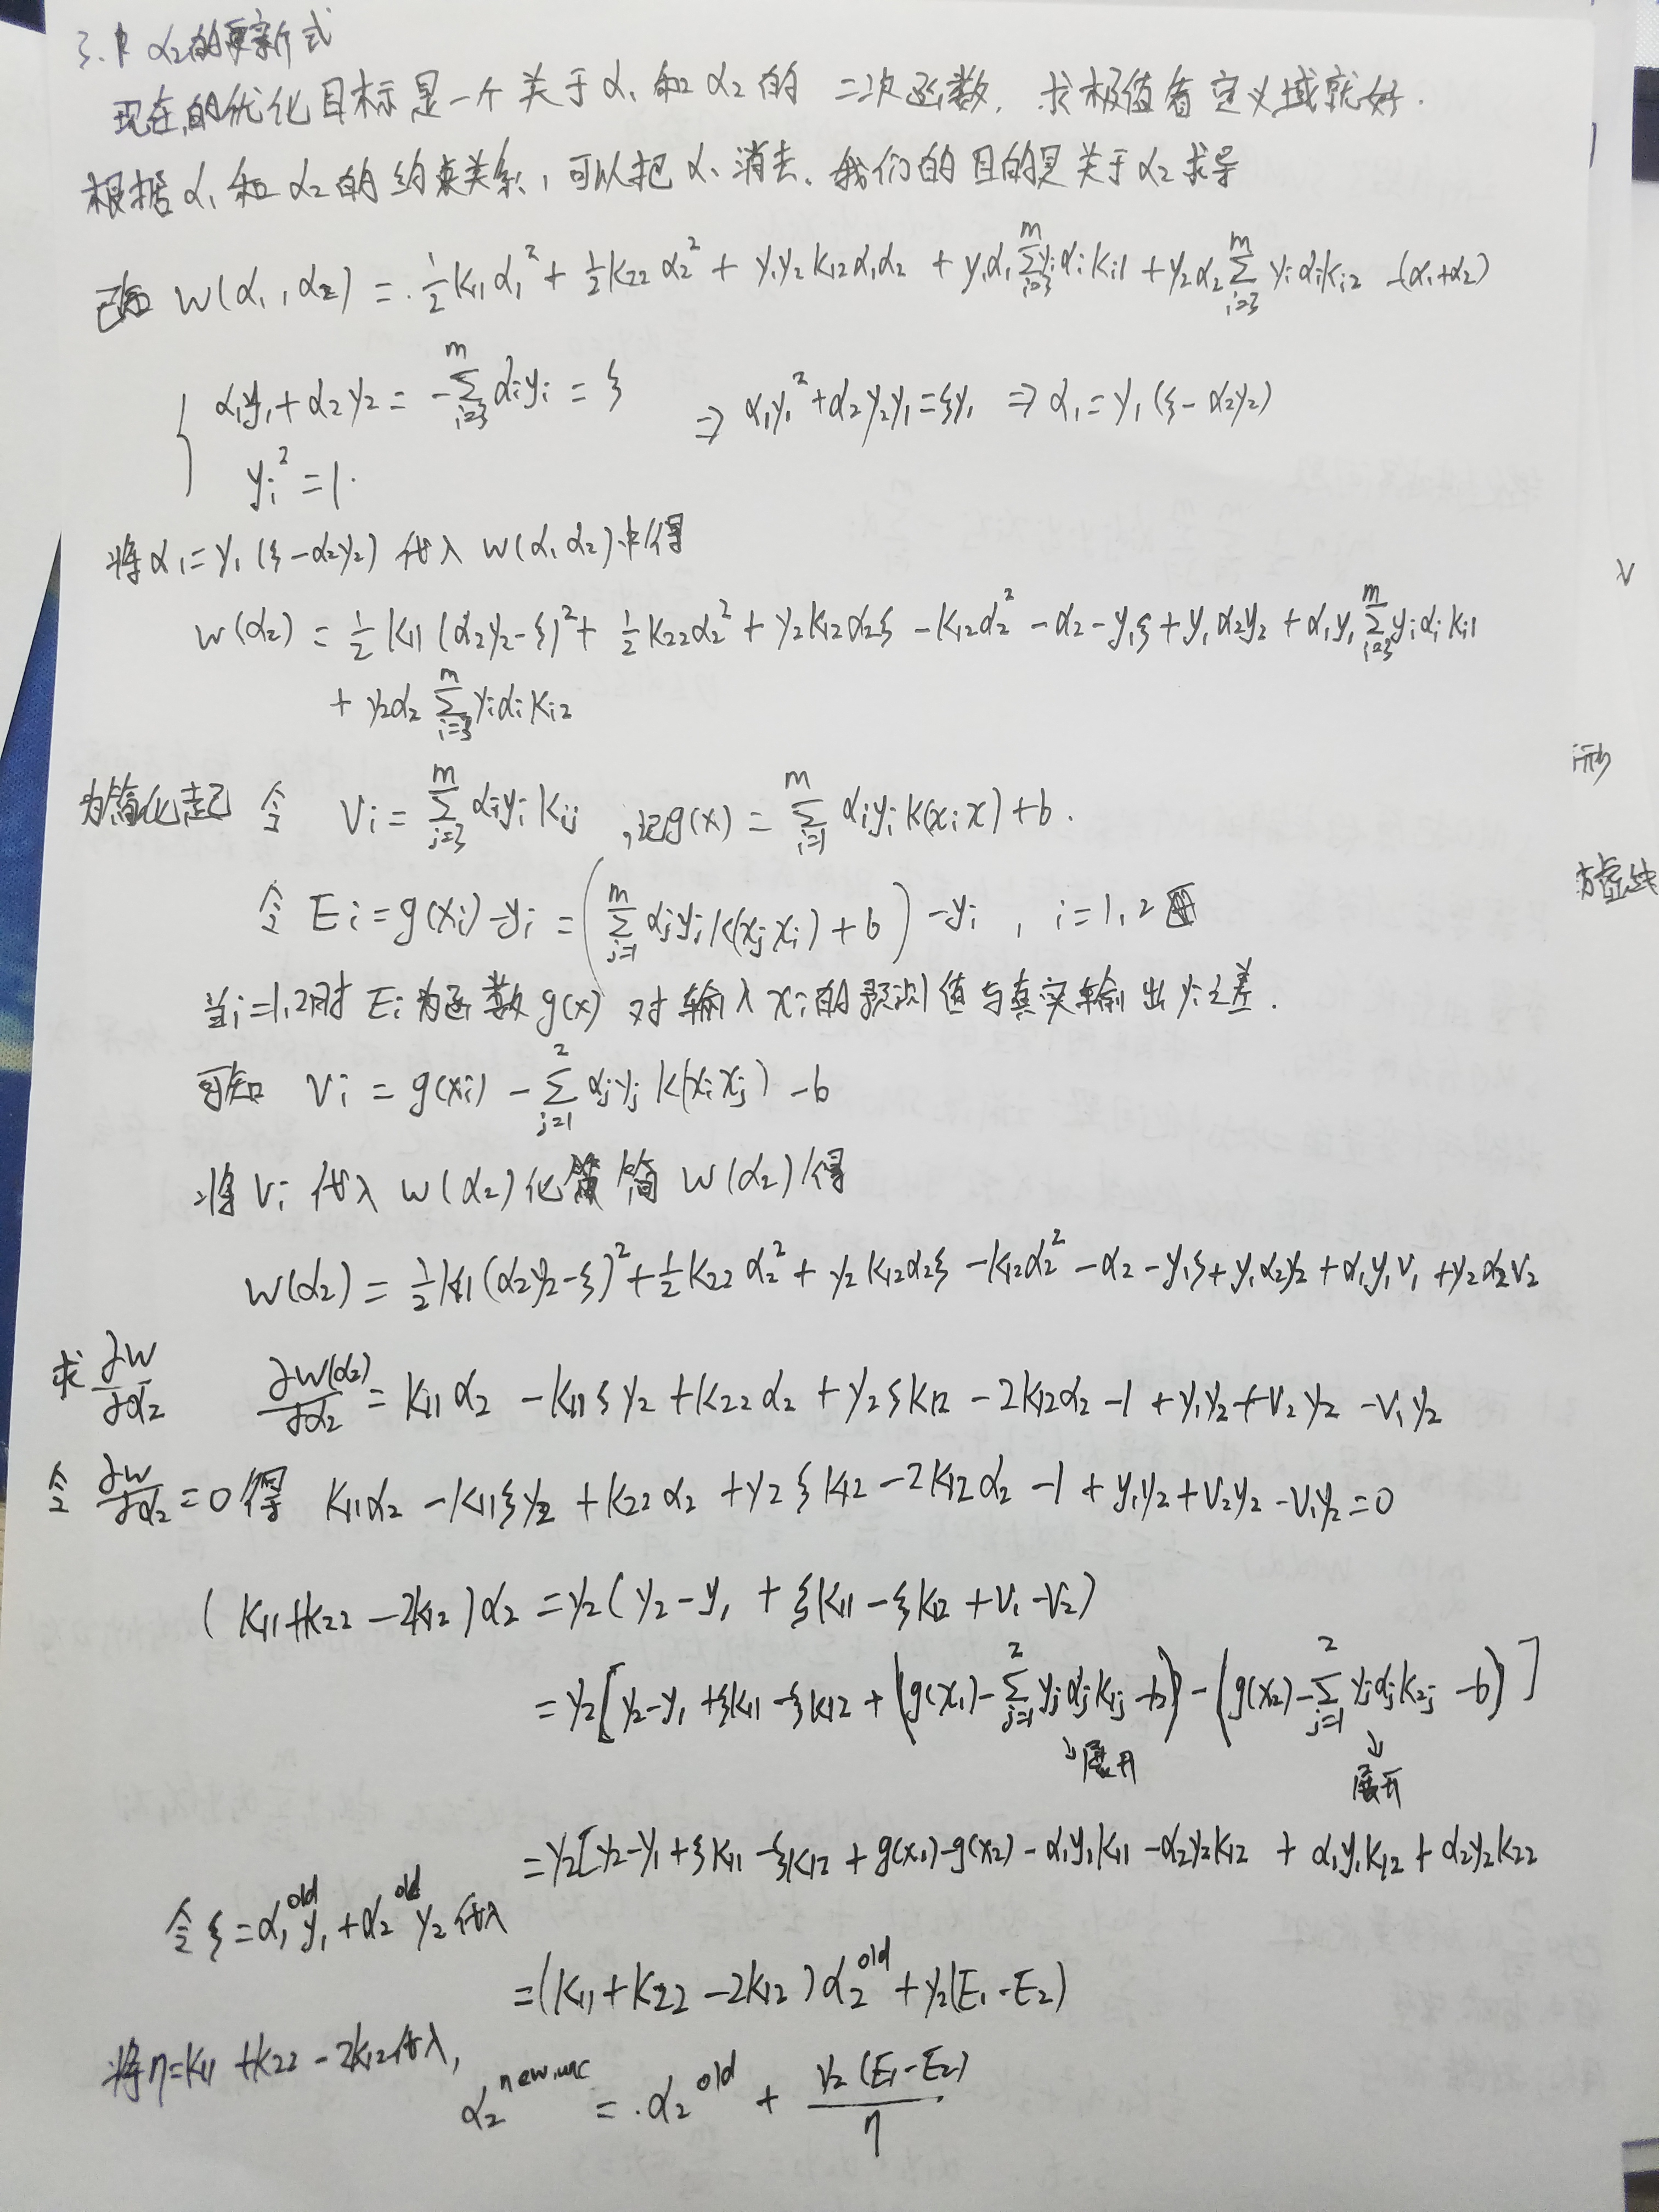 3.1 α₂的更新式
现在的优化目标是一个关于α₁和α₂的二次函数，求极值看定义域就好.
根据α₁和α₂的约束关系，可以把α₁消去，我们的目的是关于α₂求导
已知 W(α₁,α₂) = ½K₁₁α₁² + ½K₂₂α₂² + y₁y₂K₁₂α₁α₂ + y₁α₁∑_{i=3}^{m} yᵢαᵢKᵢ₁ + y₂α₂∑_{i=3}^{m} yᵢαᵢKᵢ₂ -(α₁+α₂)
{ α₁y₁+α₂y₂ = -∑_{i=3}^{m} αᵢyᵢ = ξ ⇒ α₁y₁²+α₂y₂y₁=ξy₁ ⇒ α₁=y₁(ξ-α₂y₂)
yᵢ²=1.
将α₁=y₁(ξ-α₂y₂)代入W(α₁α₂)中得
W(α₂) = ½K₁₁(α₂y₂-ξ)² + ½K₂₂α₂² + y₂K₁₂α₂ξ - K₁₂α₂² - α₂ - y₁ξ + y₁α₂y₂ + α₁y₁∑_{i=3}^{m} yᵢαᵢKᵢ₁
+ y₂α₂∑_{i=3}^{m} yᵢαᵢKᵢ₂
为简化起 令 Vᵢ = ∑_{j=3}^{m} αⱼyⱼKᵢⱼ ,记g(x) = ∑_{i=1}^{m} αᵢyᵢK(xᵢx)+b.
令 Eᵢ = g(xᵢ)-yᵢ = (∑_{j=1}^{m} αⱼyⱼK(xⱼxᵢ)+b) -yᵢ , i=1,2
当i=1,2时 Eᵢ为函数g(x) 对输入xᵢ的预测值与真实输出yᵢ之差.
可知 Vᵢ = g(xᵢ) - ∑_{j=1}^{2} αⱼyⱼK(xᵢxⱼ) -b
将Vᵢ代入W(α₂)化简W(α₂)得
W(α₂) = ½K₁₁(α₂y₂-ξ)²+½K₂₂α₂²+y₂K₁₂α₂ξ-K₁₂α₂²-α₂-y₁ξ+y₁α₂y₂+α₁y₁V₁+y₂α₂V₂
求 ∂W/∂α₂ ∂W(α₂)/∂α₂ = K₁₁α₂ -K₁₁ξy₂+K₂₂α₂+y₂ξK₁₂-2K₁₂α₂-1+y₁y₂+V₂y₂-V₁y₂
令 ∂W/∂α₂=0得 K₁₁α₂-K₁₁ξy₂+K₂₂α₂+y₂ξK₁₂-2K₁₂α₂-1+y₁y₂+V₂y₂-V₁y₂=0
(K₁₁+K₂₂-2K₁₂)α₂ = y₂(y₂-y₁+ξK₁₁-ξK₁₂+V₁-V₂)
= y₂[y₂-y₁+ξK₁₁-ξK₁₂+(g(x₁)-∑_{j=1}^{2} yⱼαⱼK₁ⱼ-b)-(g(x₂)-∑_{j=1}^{2} yⱼαⱼK₂ⱼ-b)]
↓展开 ↓展开
= y₂[y₂-y₁+ξK₁₁-ξK₁₂+g(x₁)-g(x₂)-α₁y₁K₁₁-α₂y₂K₁₂+α₁y₁K₁₂+α₂y₂K₂₂
令ξ=α₁^{old}y₁+α₂^{old}y₂代入
=(K₁₁+K₂₂-2K₁₂)α₂^{old}+y₂(E₁-E₂)
将η=K₁₁+K₂₂-2K₁₂代入,
α₂^{new,unc} = α₂^{old} + y₂(E₁-E₂)/η
V
形
方虚线